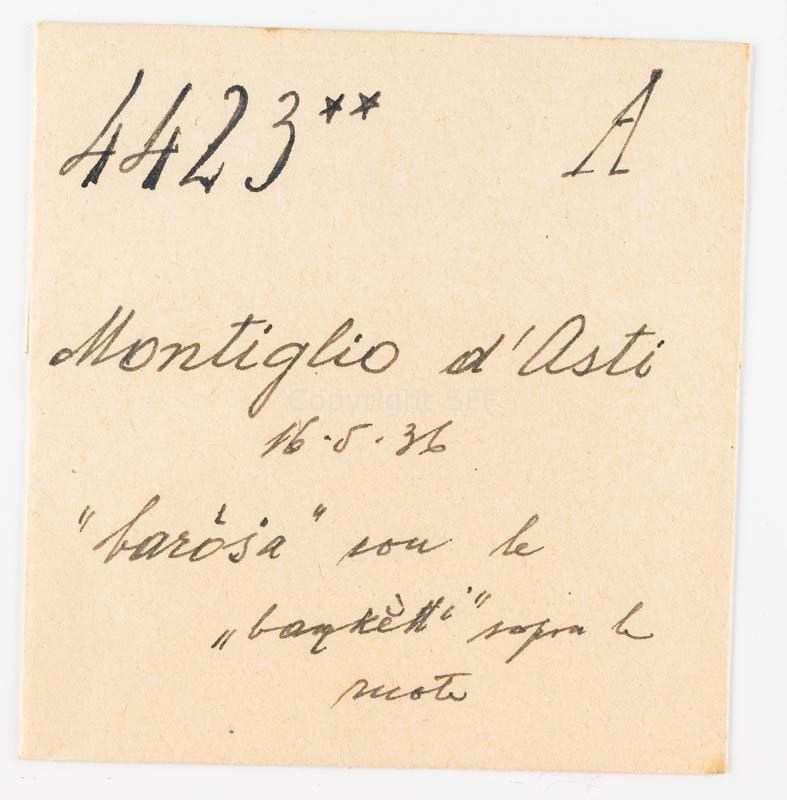 4423** A
Montiglio d'Asti
Copyright SFF
16.5.36
"baròsa" con le
„baŋkètti" sopra le
ruote